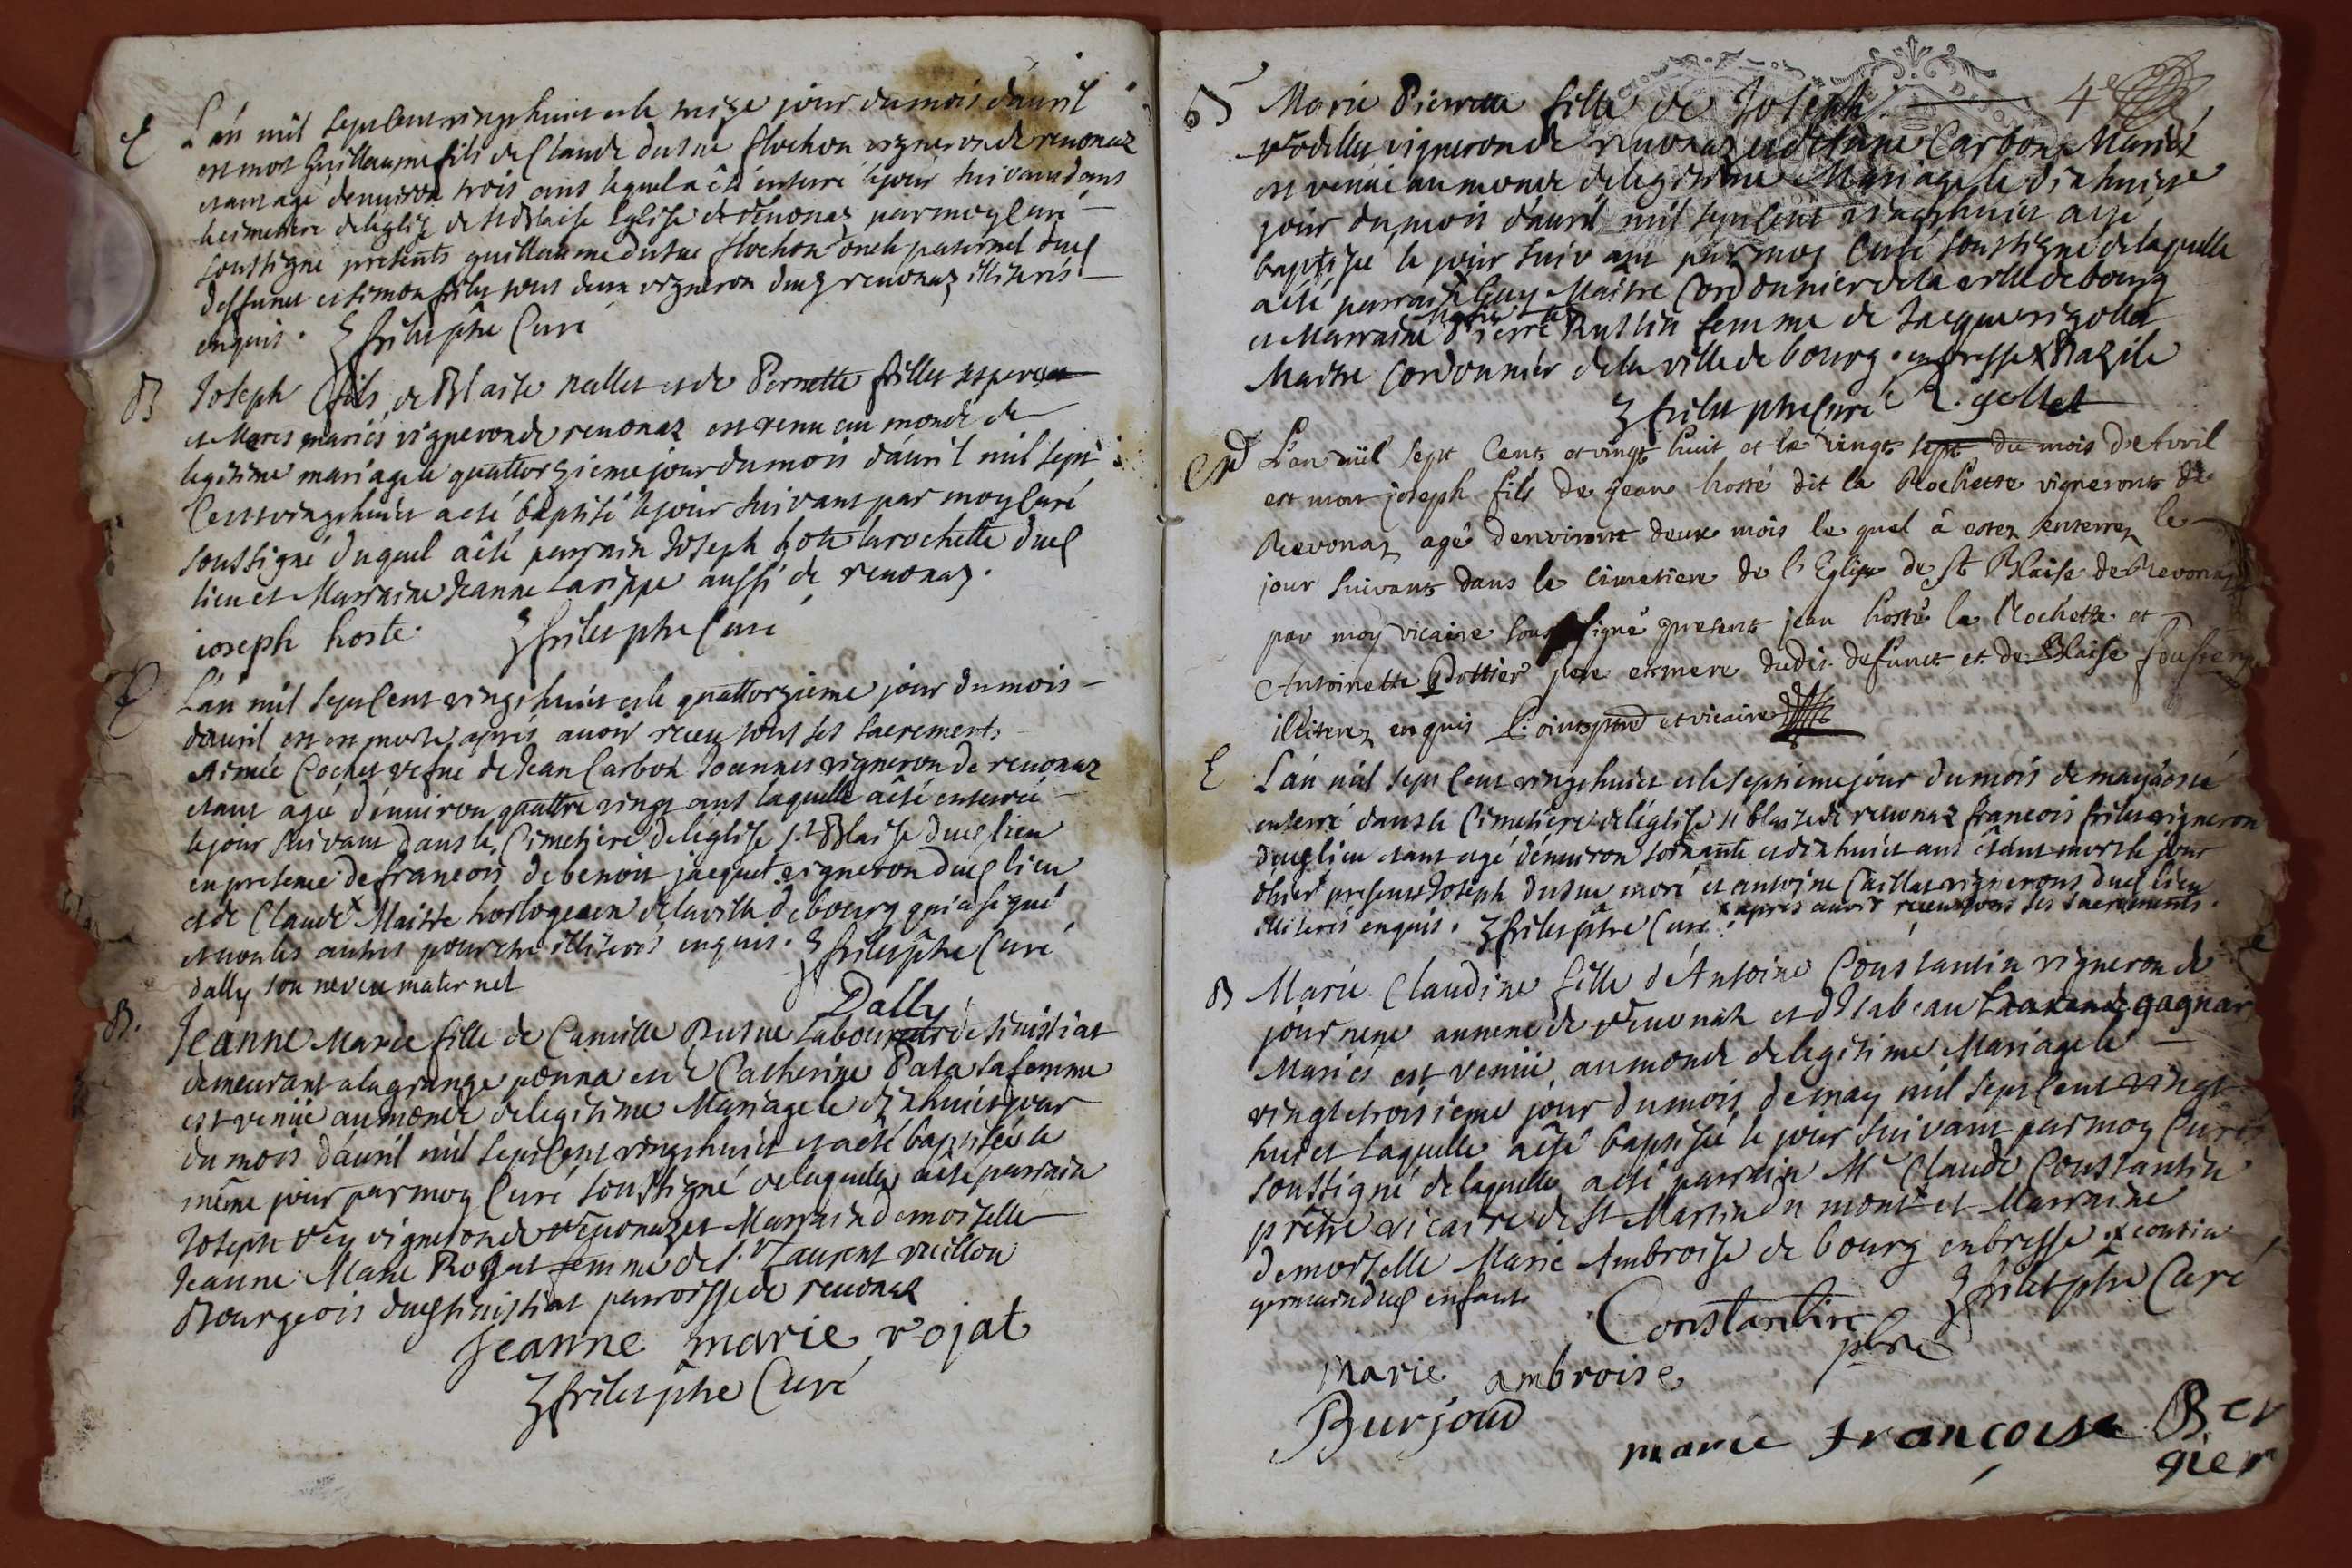 E L'an mil sept cent vingt huict et le treize jour du mois d'auril
est mort Guillaume fils de Claude dusue flochon vigneron de reuonaz
etant agé denuiron trois ans lequel a êté enterré le jour suivant dans
le cimetiere de l'eglise de st Blaise Eglise de réuonaz par moy Curé
soussigné presents guillaume dusue flochon oncle paternel dud
deffunct et simon frilet tous deux vigneron dud reuonaz illiterés
enquis. frilet ptre Curé
B Joseph fils de Blaise nallet et de Pernette frillet ses peres
et Meres mariés vigneron de reuonaz est venu au monde de
legitime mariage le quattorzieme jour du mois d'auril mil sept
Cent vingt huict a eté baptisé le jour suivant par moy Curé
soussigné duquel a êté parrain Joseph hote larochette dud
lieu et Marraine Jeanne Larippe aussi de reuonaz.
ioseph hoste. frilet ptre Curé
E L'an mil sept cent vingt huict et le quattorzieme jour du mois
d'auril est morte, aprés auoir receu tous ses sacrements
Aimée Cochet vefue de Jean Carbon Joannes vigneron de reuonaz
etant agé d'enuiron quattre vingt ans laquelle a êté enterrée
le jour suivant dans le Cimetiere de l'eglise st Blaise dud lieu
en presence de francois de benoit jacquet vigneron dud lieu
et de Claude x Maistre horlogeur de la ville de bourg qui a signé
et non les autres pour etre illiterés enquis. frilet ptre Curé
dally son neveu maternel
Dally
B. Jeanne Marie fille de Camille Dusue Laboureur de sinissiat
demeurant a la grange ponna et Catherine Pata sa femme
est venüe au monde de legitime Mariage le dixhuict jour
du mois d'auril mil sept cent vingt huict et a eté baptisée le
même jour par moy Curé soussigné de laquelle a êté parrain
Joseph véy vigneron de réuonaz et Marraine demoiselle
Jeanne Marie Rojat femme de s.r Laurent vuillon
Bourgeois dud sinissiat parroisse de reuonaz
Jeanne marie rojat
frilet ptre Curé
4e
B Marie Pierrette fille de Joseph
vodillet vigneron de réuonaz et Carbon Mariés
est venüe au monde de legitime Mariage le dixhuict
jour du mois d'auril mil sept cent vingt huict a esté
baptizée le jour suivant par moy Curé soussigné de laquelle
a êté parrain Guy Maître Cordonnier de la ville de bourg
et Marraine Pierre Rullin femme de Jacque rigollet
Maitre Cordonnier de la ville de bourg en bresse x Bazile
frilet ptre Curé R. gollet
L'an mil sept Cent et vingt huit et le vingt sept du mois de Avril
est mort joseph fils de jean hosté dit la Rochette vigneront de
Revonaz agé denviront deux mois le quel à estez enterrez le
jour suivant dans le cimetiere de l'Eglise de st Blaise de Revonaz
par moy vicaire soussigné present jean hosté la Rochette et
Antoinette Pottier pere et mere dudit defunct et de Blaise
illiterez enquis ptre et vicaire
E L'an mil sept cent vingt huict et le septieme jour du mois de may a esté
enterré dans le Cimetiere de l'eglise st blaise de reuonaz francois frilet vigneron
dud lieu etant agé d'enuiron soixante et dixhuict ans étant mort le jour
d'hier present Joseph dusue moré et antoine Caillat vignerons dud lieu
illiterés enquis. frilet ptre Curé. x aprés auoir receu tous ses sacrements.
B Marie Claudine fille d'Antoine Constantin vigneron de
journene annexe de réuonaz et d'Isabeau gagnar
Mariés est venüe au monde de legitime Mariage le
vingt troisieme jour du mois de may mil sept cent vingt
huict laquelle a êté baptisée le jour suivant par moy Curé
soussigné de laquelle a eté parrain Mre Claude Constantin
prêtre vicaire de st Martin du mont x et Marraine
demoiselle Marie Ambroise de bourg en bresse. x cousin
germain dud enfant frilet ptre Curé
Constantin
ptre
Marie ambroise
Burjoud
marie françoise Ber
gier